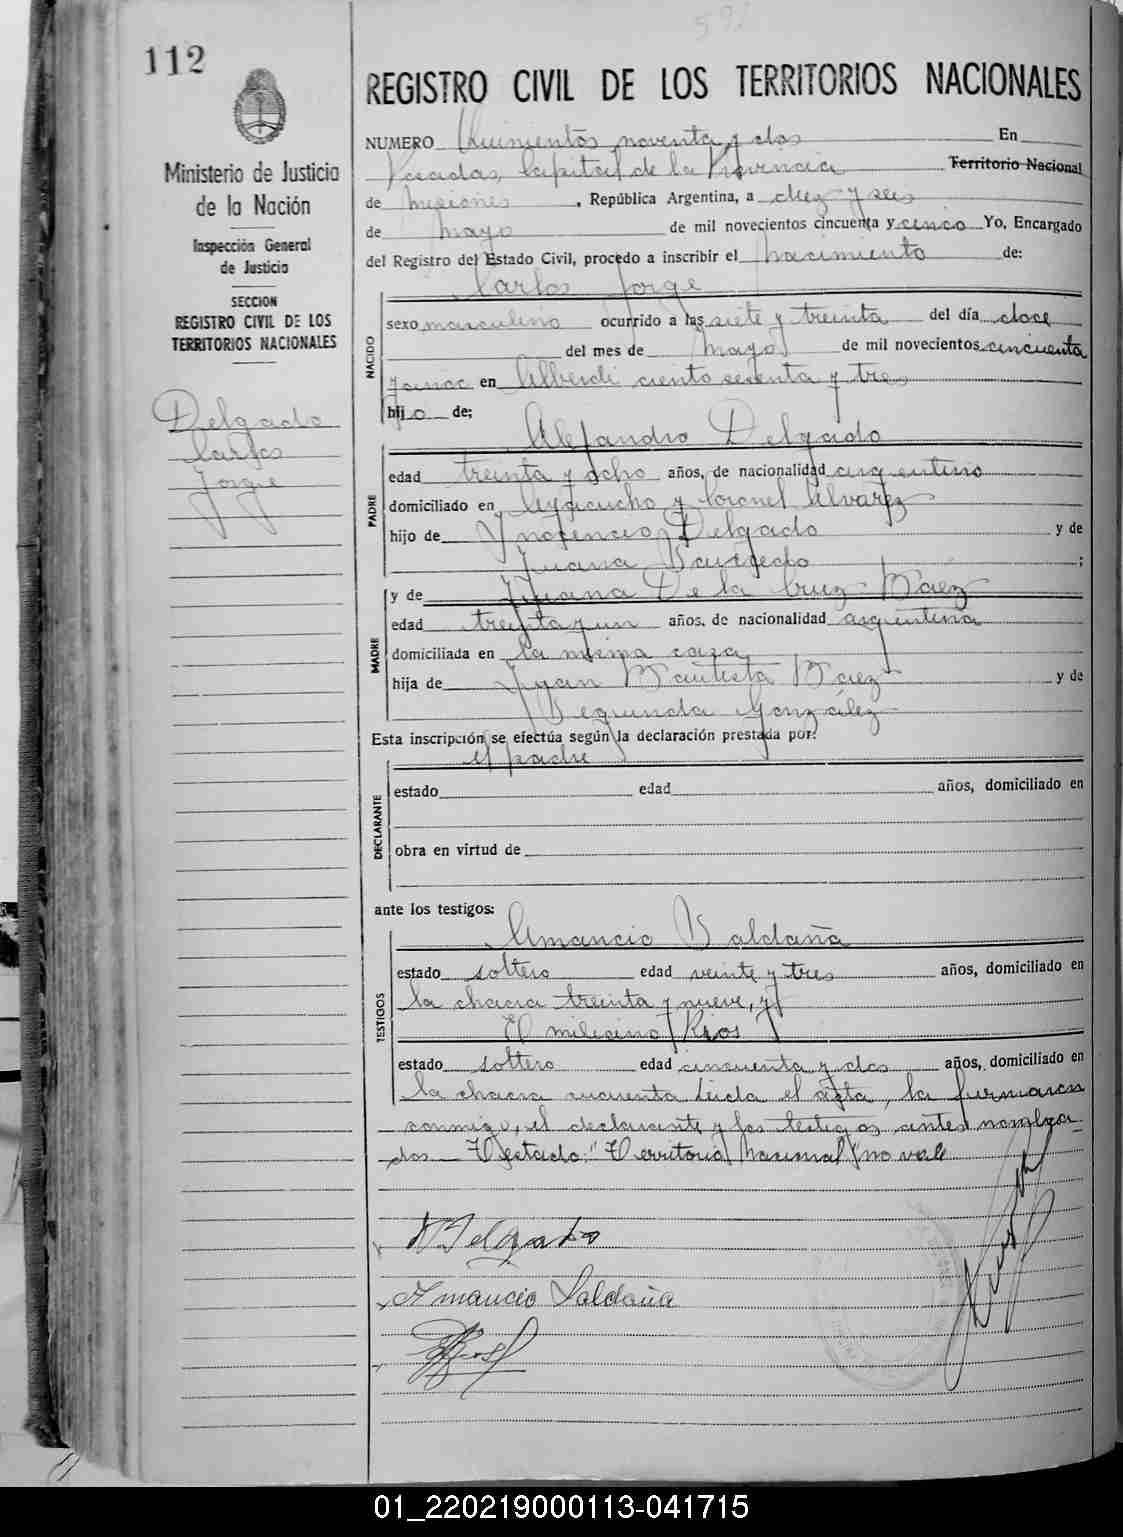 592
112
REGISTRO CIVIL DE LOS TERRITORIOS NACIONALES
Ministerio de Justicia
de la Nación
Inspección General
de Justicia
SECCION
REGISTRO CIVIL DE LOS
TERRITORIOS NACIONALES
Delgado
Carlos
Jorge
NUMERO Quinientos noventa y dos En
Posadas, Capital de la Provincia Territorio Nacional
de Misiones, República Argentina, a diez y seis
de mayo de mil novecientos cincuenta y cinco Yo, Encargado
del Registro del Estado Civil, procedo a inscribir el nacimiento de:
Carlos Jorge
NACIDO
sexo masculino ocurrido a las siete y treinta del día doce
del mes de mayo de mil novecientos cincuenta
en Alberdi ciento sesenta y tres
hijo de;
Alejandro Delgado
PADRE
edad treinta y ocho años, de nacionalidad argentino
domiciliado en Ayacucho y Coronel Alvarez
hijo de Ynocencio Delgado y de
Juana ;
y de Juana De la Cruz Baez
MADRE
edad treinta y un años, de nacionalidad argentina
domiciliada en la misma casa
hija de Juan Bautista Baez y de
Segunda González
Esta inscripción se efectúa según la declaración prestada por:
el padre
DECLARANTE
estado edad años, domiciliado en
obra en virtud de
ante los testigos:
Amancio Saldaña
TESTIGOS
estado soltero edad veinte y tres años, domiciliado en
la chacra treinta y nueve, y
Rios
estado soltero edad cincuenta y dos años, domiciliado en
la chacra cuarenta Leida el acta, la firmaron
conmigo, el declarante y los testigos antes nombra-
dos.- Testado: "Territorio Nacional" no vale
A Delgado
Amancio Saldaña
01_220219000113-041715